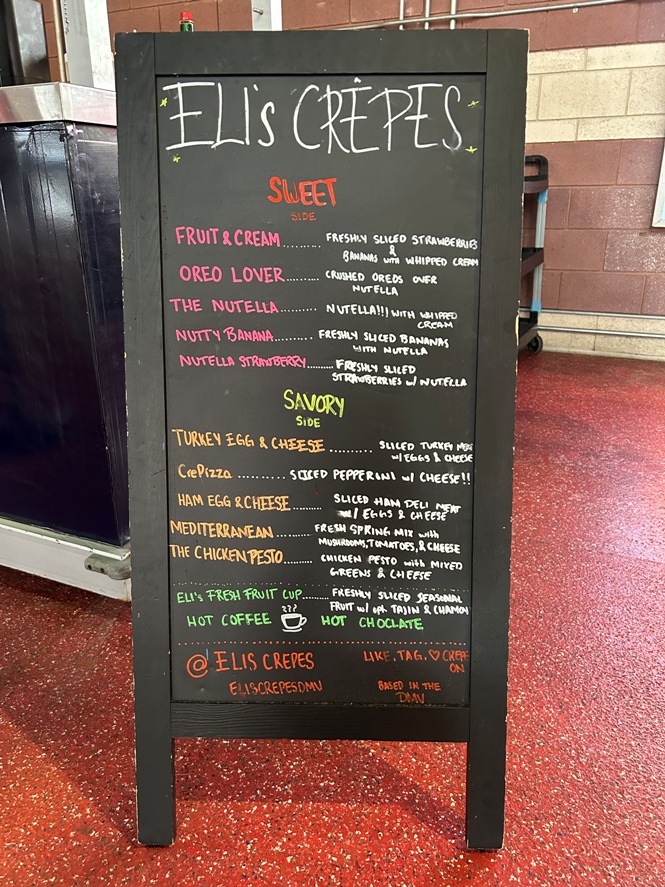 ELI's CRÊPES
SWEET
SIDE
FRUIT & CREAM...... FRESHLY SLICED STRAWBERRIES
&
BANANAS with WHIPPED CREAM
OREO LOVER...... CRUSHED OREOS OVER
NUTELLA
THE NUTELLA...... NUTELLA!!! WITH WHIPPED
CREAM
NUTTY BANANA......... FRESHLY SLICED BANANAS
WITH NUTELLA
NUTELLA STRAWBERRY...... FRESHLY SLICED
STRAWBERRIES w/ NUTELLA
SAVORY
SIDE
TURKEY EGG & CHEESE ......... SLICED TURKEY MEAT
w/ EGGS & CHEESE
CrePizza ......... SLICED PEPPERONI w/ CHEESE!!
HAM EGG & CHEESE ...... SLICED HAM DELI MEAT
w/ EGGS & CHEESE
MEDITERRANEAN......... FRESH SPRING MIX with
MUSHROOMS, TOMATOES, & CHEESE
THE CHICKEN PESTO...... CHICKEN PESTO with MIXED
GREENS & CHEESE
ELI's FRESH FRUIT CUP...... FRESHLY SLICED SEASONAL
FRUIT w/ opt. TAJIN & CHAMOY
HOT COFFEE HOT CHOCLATE
@ ELIS CREPES LIKE. TAG. ♡ CREPE
ON
ELISCREPESDMV BASED IN THE
DMV